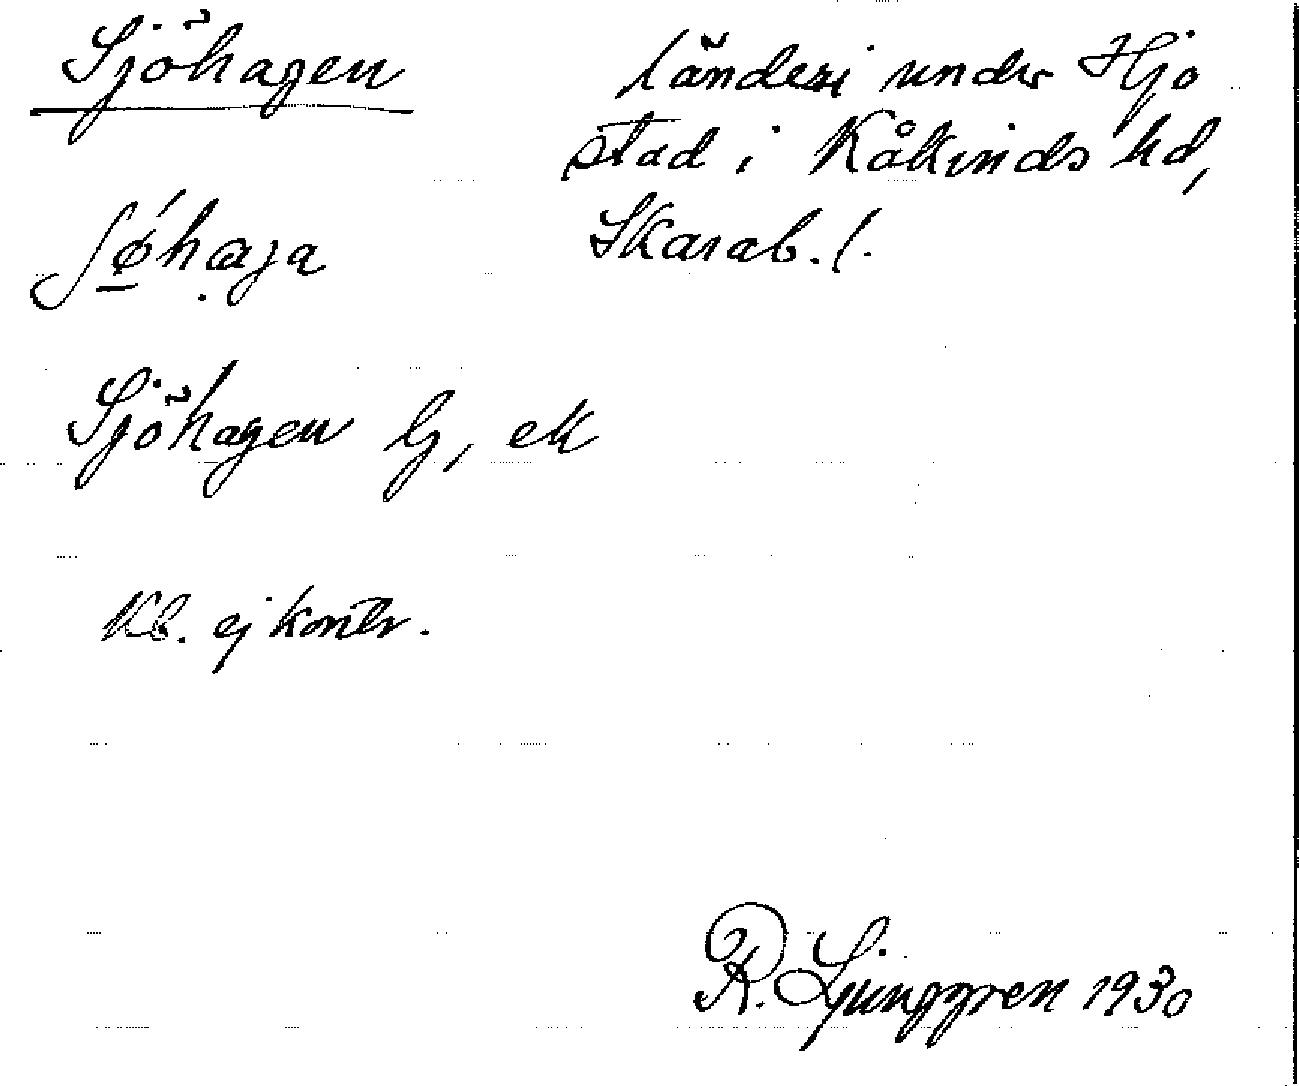 Sjöhagen
länderi under Hjo
stad i Kåkinds hd,
Skarab. l.
ʃǿ̠hạga
Sjöhagen G, ek
Kb. ej kontr.
R. Ljunggren 1930